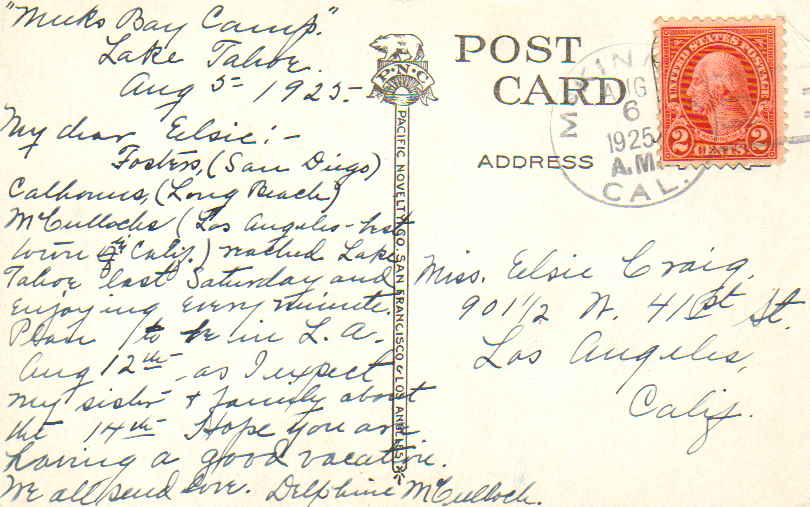 "Meeks Bay Camp."
Lake Tahoe
Aug 5 - 1925 -
My dear Elsie: -
Fosters, (San Diego)
Calhouns, (Long Beach)
McCullochs (Los Angeles - best
town in Calif.) reached Lake
Tahoe last Saturday and
enjoying every minute.
Plan to be in L.A.
Aug 12th - as I expect
my sister & family about
the 14th Hope you are
having a good vacation.
We all send love. Delphine McCulloch.
P.N.C
PACIFIC NOVELTY CO. SAN FRANCISCO & LOS ANGELES
POST
CARD
ADDRESS
AUG
6
1925
A.M.
CAL.
UNITED STATES POSTAGE
2 2
Miss. Elsie Craig,
901 1/2 W. 41st St.
Los Angeles,
Calif.